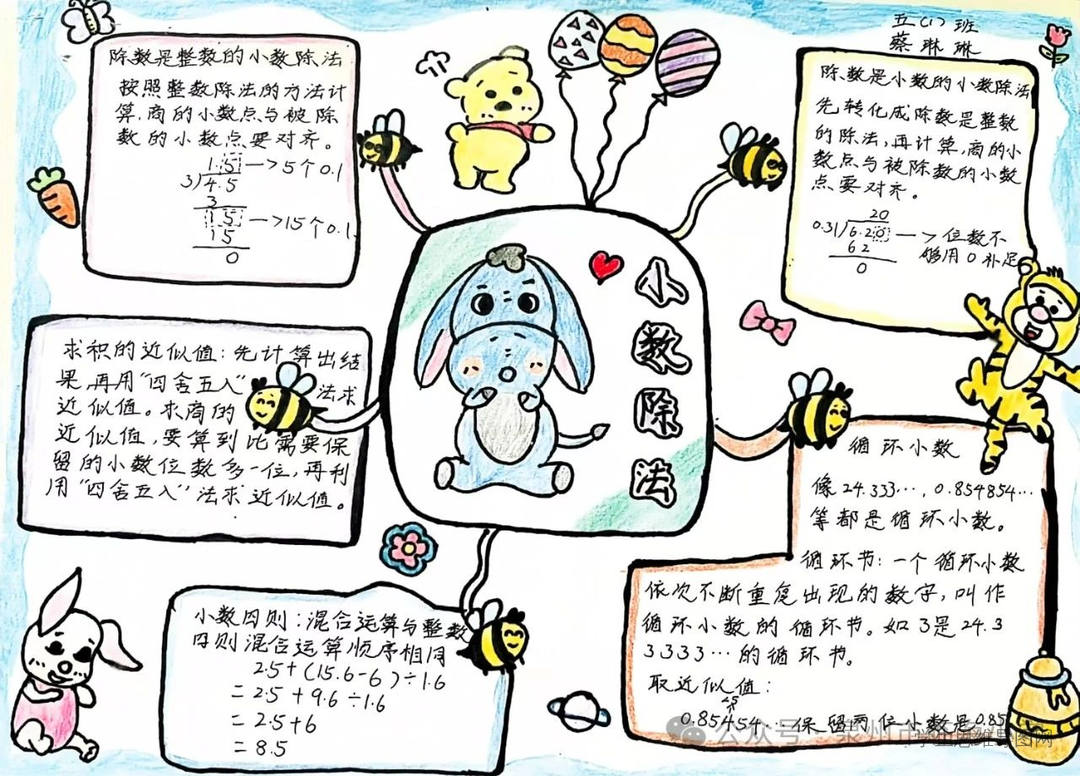 五(1)班
蔡琳琳
除数是整数的小数除法
按照整数除法的方法计
算.商的小数点与被除
数的小数点要对齐。
1.5—>5个0.1
3)4.5
3
15—>15个0.1
15
0
除数是小数的小数除法
先转化成除数是整数
的除法,再计算,商的小
数点与被除数的小数
点要对齐。
20
0.31/6.20—>位数不
够用0补足
62
0
小数除法
求积的近似值:先计算出结
果,再用"四舍五入"法求
近似值。求商的
近似值,要算到比需要保
留的小数位数多一位,再利
用"四舍五入"法求近似值。
循环小数
像24.333…,0.854854…
等都是循环小数。
循环节:一个循环小数
依次不断重复出现的数字,叫作
循环小数的循环节。如3是24.3
3333…的循环节。
取近似值:
≥5
0.85454…保留两位小数是0.85
小数四则:混合运算与整数
四则混合运算顺序相同
2.5+(15.6-6)÷1.6
=2.5+9.6÷1.6
=2.5+6
=8.5
公众号
思维导图网